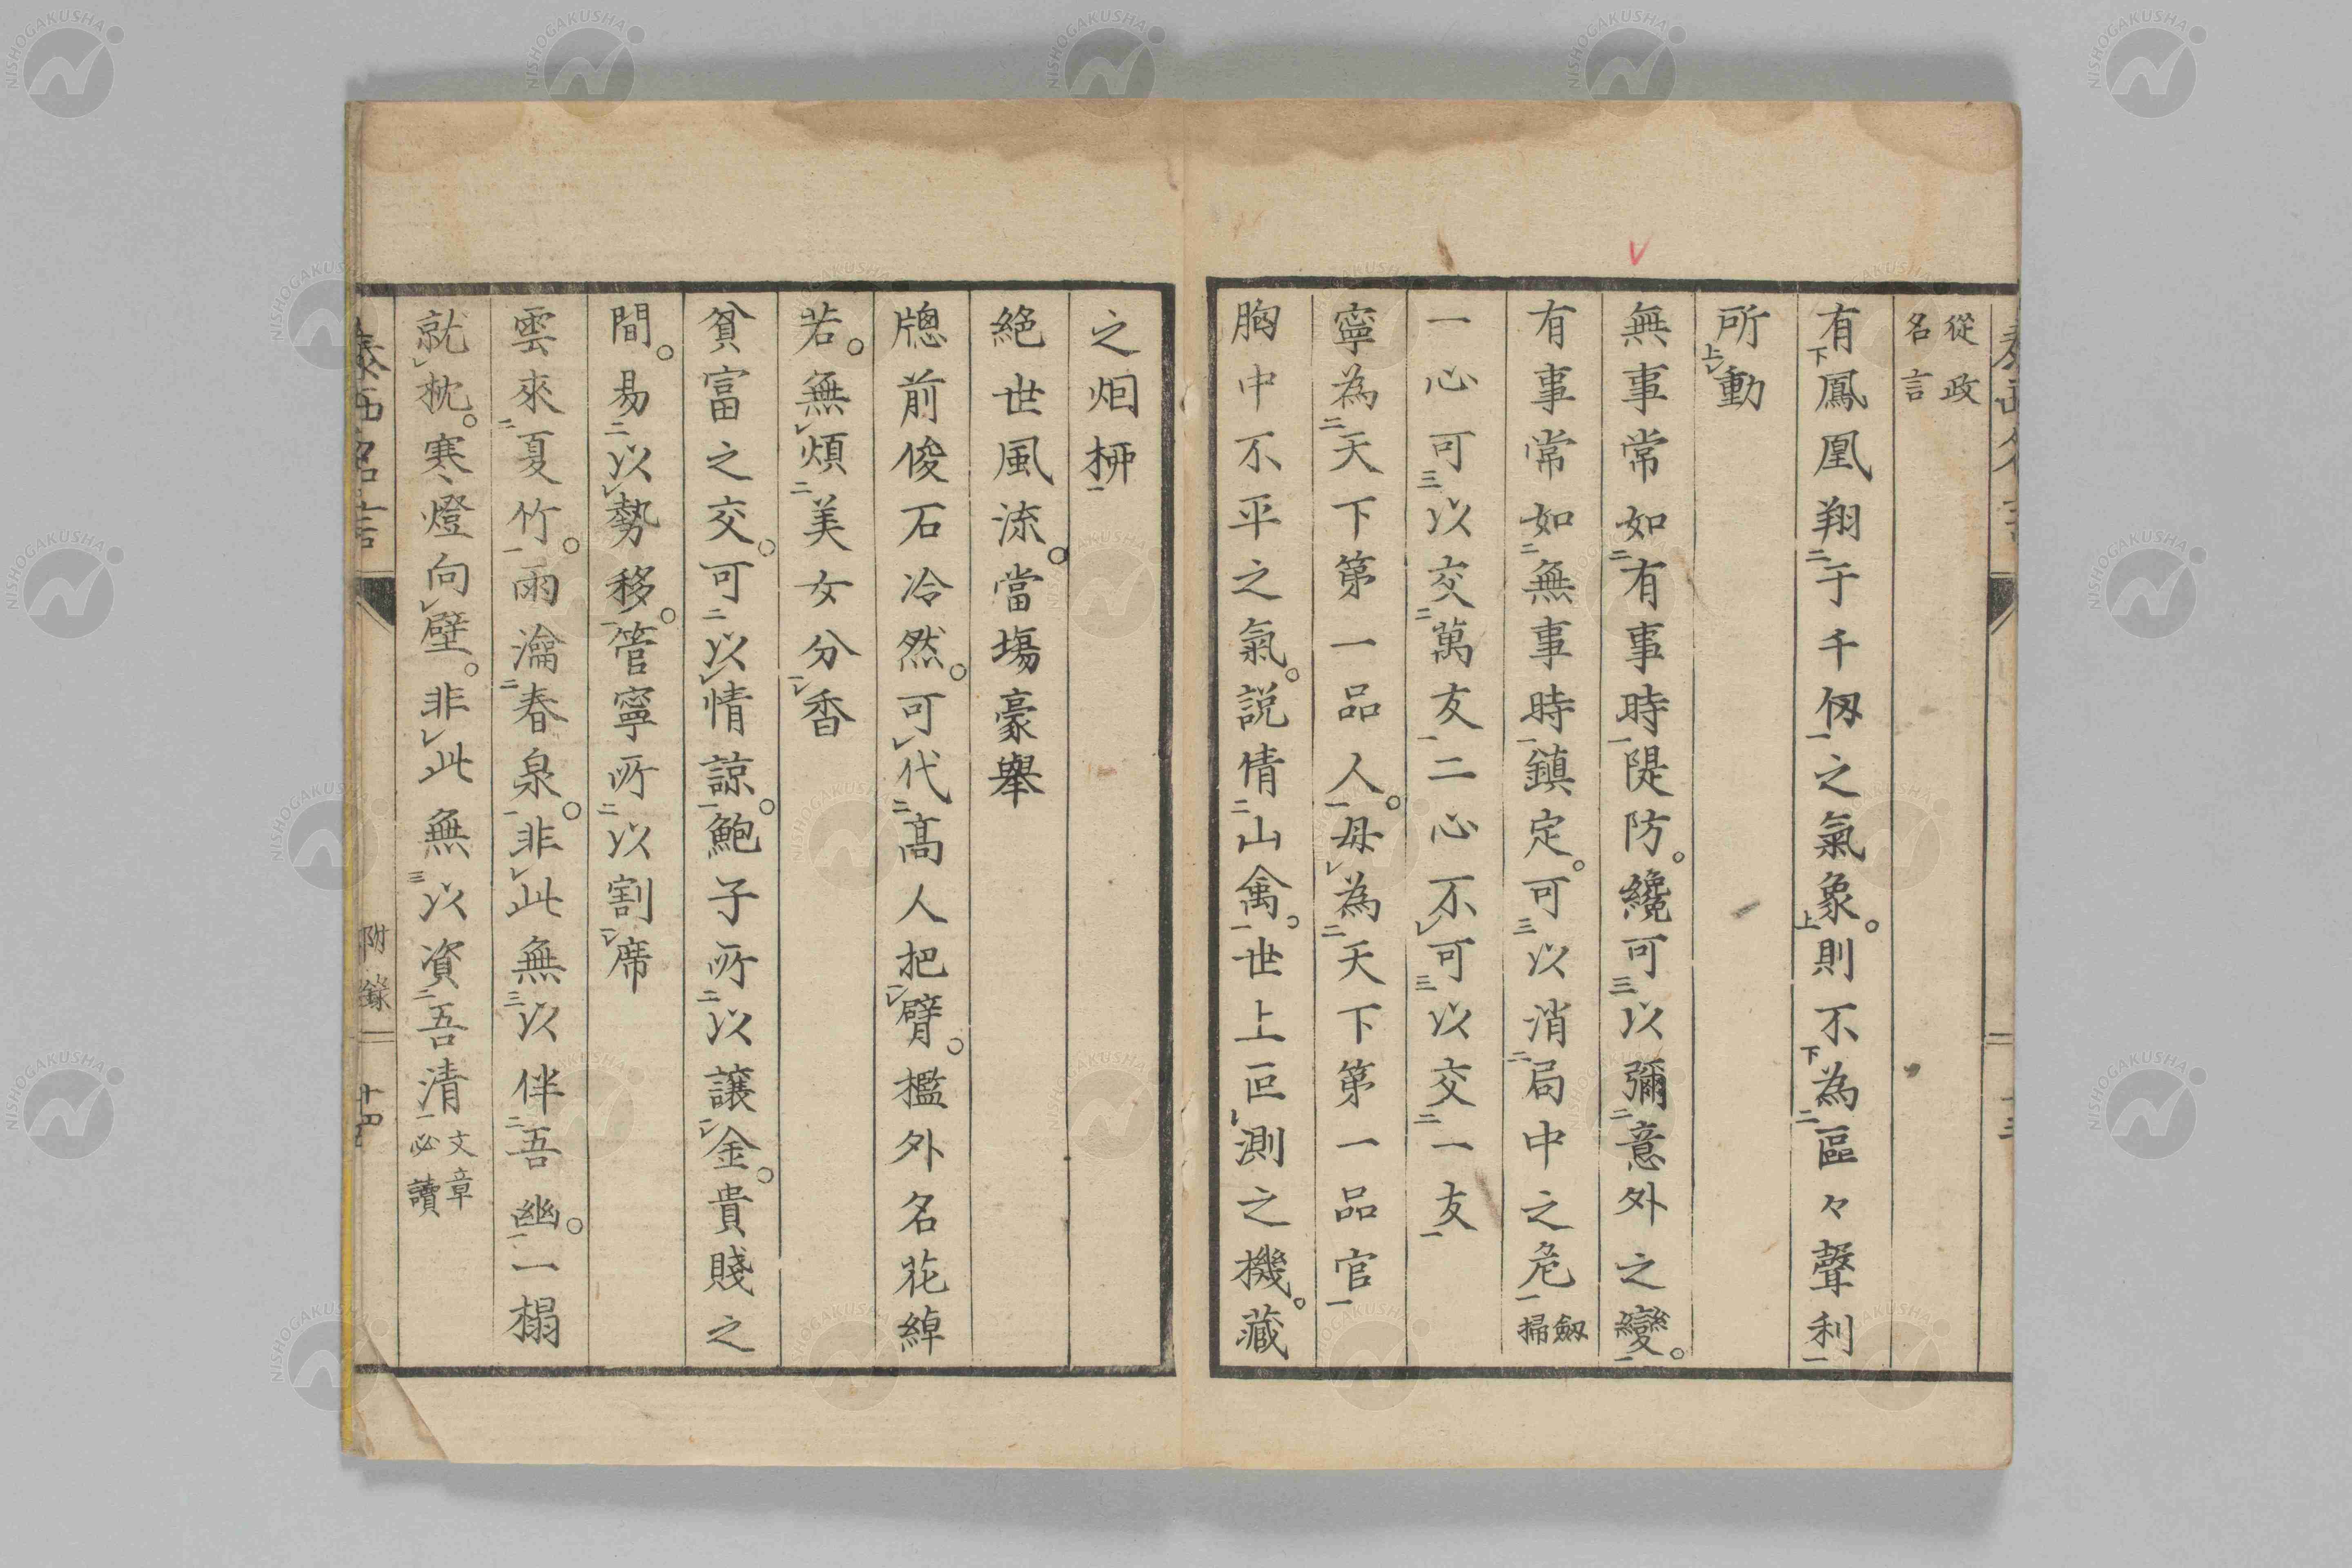 從政
名言
有鳳凰翔于千仭之氣象。則不為區々聲利
所動
無事常如有事時隄防。纔可以彌意外之變。
有事常如無事時鎮定。可以消局中之危 劔
掃
一心可以交萬友二心不可以交一友
寧為天下第一品人。毋為天下第一品官
胸中不平之氣。説倩山禽。世上叵測之機。藏
之烟柳
絶世風流。當塲豪舉
牕前俊石冷然。可代髙人把臂。檻外名花綽
若。無煩美女分香
貧富之交。可以情諒。鮑子所以讓金。貴賤之
間。易以勢移。管寧所以割席
雲來夏竹。雨瀹春泉。非此無以伴吾幽。一榻
就枕。寒燈向壁。非此無以資吾清 文章
必讀
泰西名言
附錄
十四
NISHOGAKUSHA